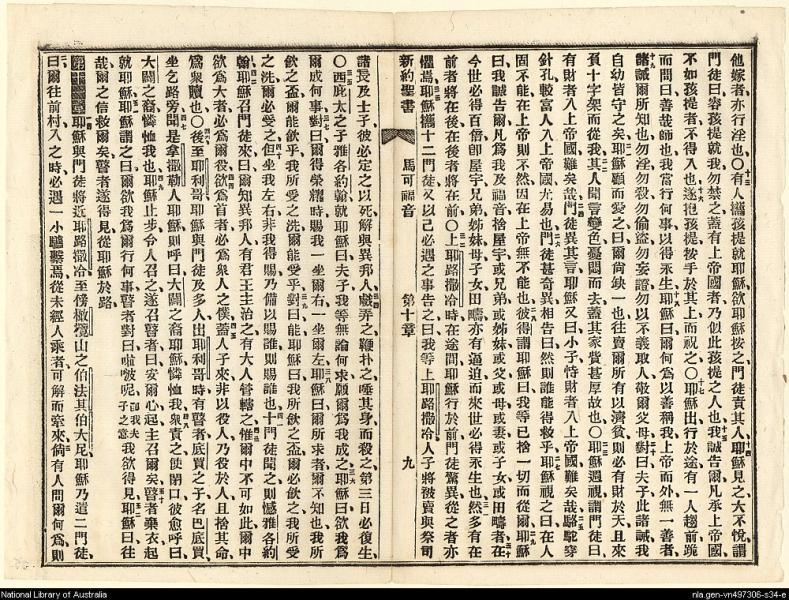 他嫁者亦行淫也〇有人攜孩提就耶穌欲耶穌按之門徒責其人耶穌見之大不悅謂
門徒曰容孩提就我勿禁之蓋有上帝國者乃似此孩提之人也我誠告爾凡承上帝國
不如孩提者不得入也遂抱孩提按手於其上而祝之〇耶穌出行於途有一人趨前跪
而問曰善哉師也我當行何事以得永生耶穌曰爾何爲以善稱我上帝而外無一善者
諸誡爾所知也勿淫勿殺勿偷盜勿妄證勿以不義取人敬爾父母對曰夫子此諸誡我
自幼皆守之矣耶穌顧而愛之曰爾尚缺一也往賣爾所有以濟貧則必有財於天且來
負十字架而從我其人聞言變色憂悶而去蓋其家貲甚厚故也〇耶穌遍視謂門徒曰
有財者入上帝國難矣哉門徒異其言耶穌又曰小子恃財者入上帝國難矣哉駱駝穿
針孔較富人入上帝國尤易也門徒甚奇異相告曰然則誰能得救乎耶穌視之曰在人
固不能在上帝則不然因在上帝無不能也彼得謂耶穌曰我等已捨一切而從爾耶穌
曰我誠告爾凡爲我及福音捨屋宇或兄弟或姊妹或父或母或妻或子女或田疇者在
今世必得百倍卽屋宇兄弟姊妹母子女田疇亦有逼迫而來世必得永生也然多有在
前者將在後在後者將在前〇上耶路撒冷時在途間耶穌行於前門徒驚異從之者亦
懼焉耶穌攜十二門徒又以己必遇之事告之曰我等上耶路撒冷人子將被賣與祭司
新約聖書 馬可福音 第十章 九
諸長及士子彼必定之以死解與異邦人戲弄之鞭扑之唾其身而殺之第三日必復生
〇西庇太之子雅各約翰就耶穌曰夫子我等無論何求願爾爲我成之耶穌曰欲我爲
爾成何事對曰爾得榮耀時賜我一坐爾右一坐爾左耶穌曰爾所求者爾不知也我所
飲之盃爾能飲乎我所受之洗爾能受乎對曰能耶穌曰我所飲之盃爾必飲之我所受
之洗爾必受之但坐我左右非我得賜乃備以賜誰則賜誰也十門徒聞之則憾雅各約
翰耶穌召門徒來曰爾知異邦人有君王主治之有大人管轄之惟爾中不可如此爾中
欲爲大者必爲爾役欲爲首者必爲衆人之僕蓋人子來非以役人乃役於人且捨其命
爲衆贖也〇後至耶利哥耶穌與門徒及多人出耶利哥時有瞽者底買之子名巴底買
坐乞路旁聞是拿撒勒人耶穌則呼曰大闢之裔耶穌憐恤我衆責之使閉口彼愈呼曰
大闢之裔憐恤我也耶穌止步令人召之遂召瞽者曰安爾心起主召爾矣瞽者棄衣起
就耶穌耶穌謂之曰爾欲我爲爾行何事瞽者對曰啦𠾐呢卽我夫子之意我欲得見耶穌曰往
哉爾之信救爾矣瞽者遂得見從耶穌於路
第十一章耶穌與門徒將近耶路撒冷至傍橄欖山之伯法其伯大尼耶穌乃遣二門徒
曰爾往前村入之時必遇一小驢繫焉從未經人乘者可解而牽來倘有人問爾何爲則
National Library of Australia
nla.gen-vn497306-s34-e